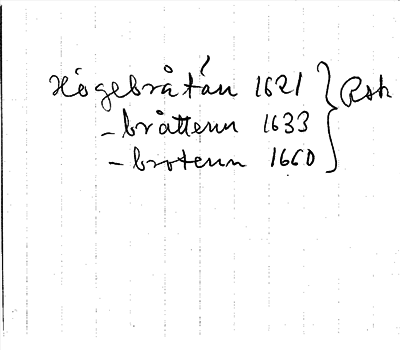 Högebråtan 1621 } Rsk
-bråttenn 1633
-brotenn 1660